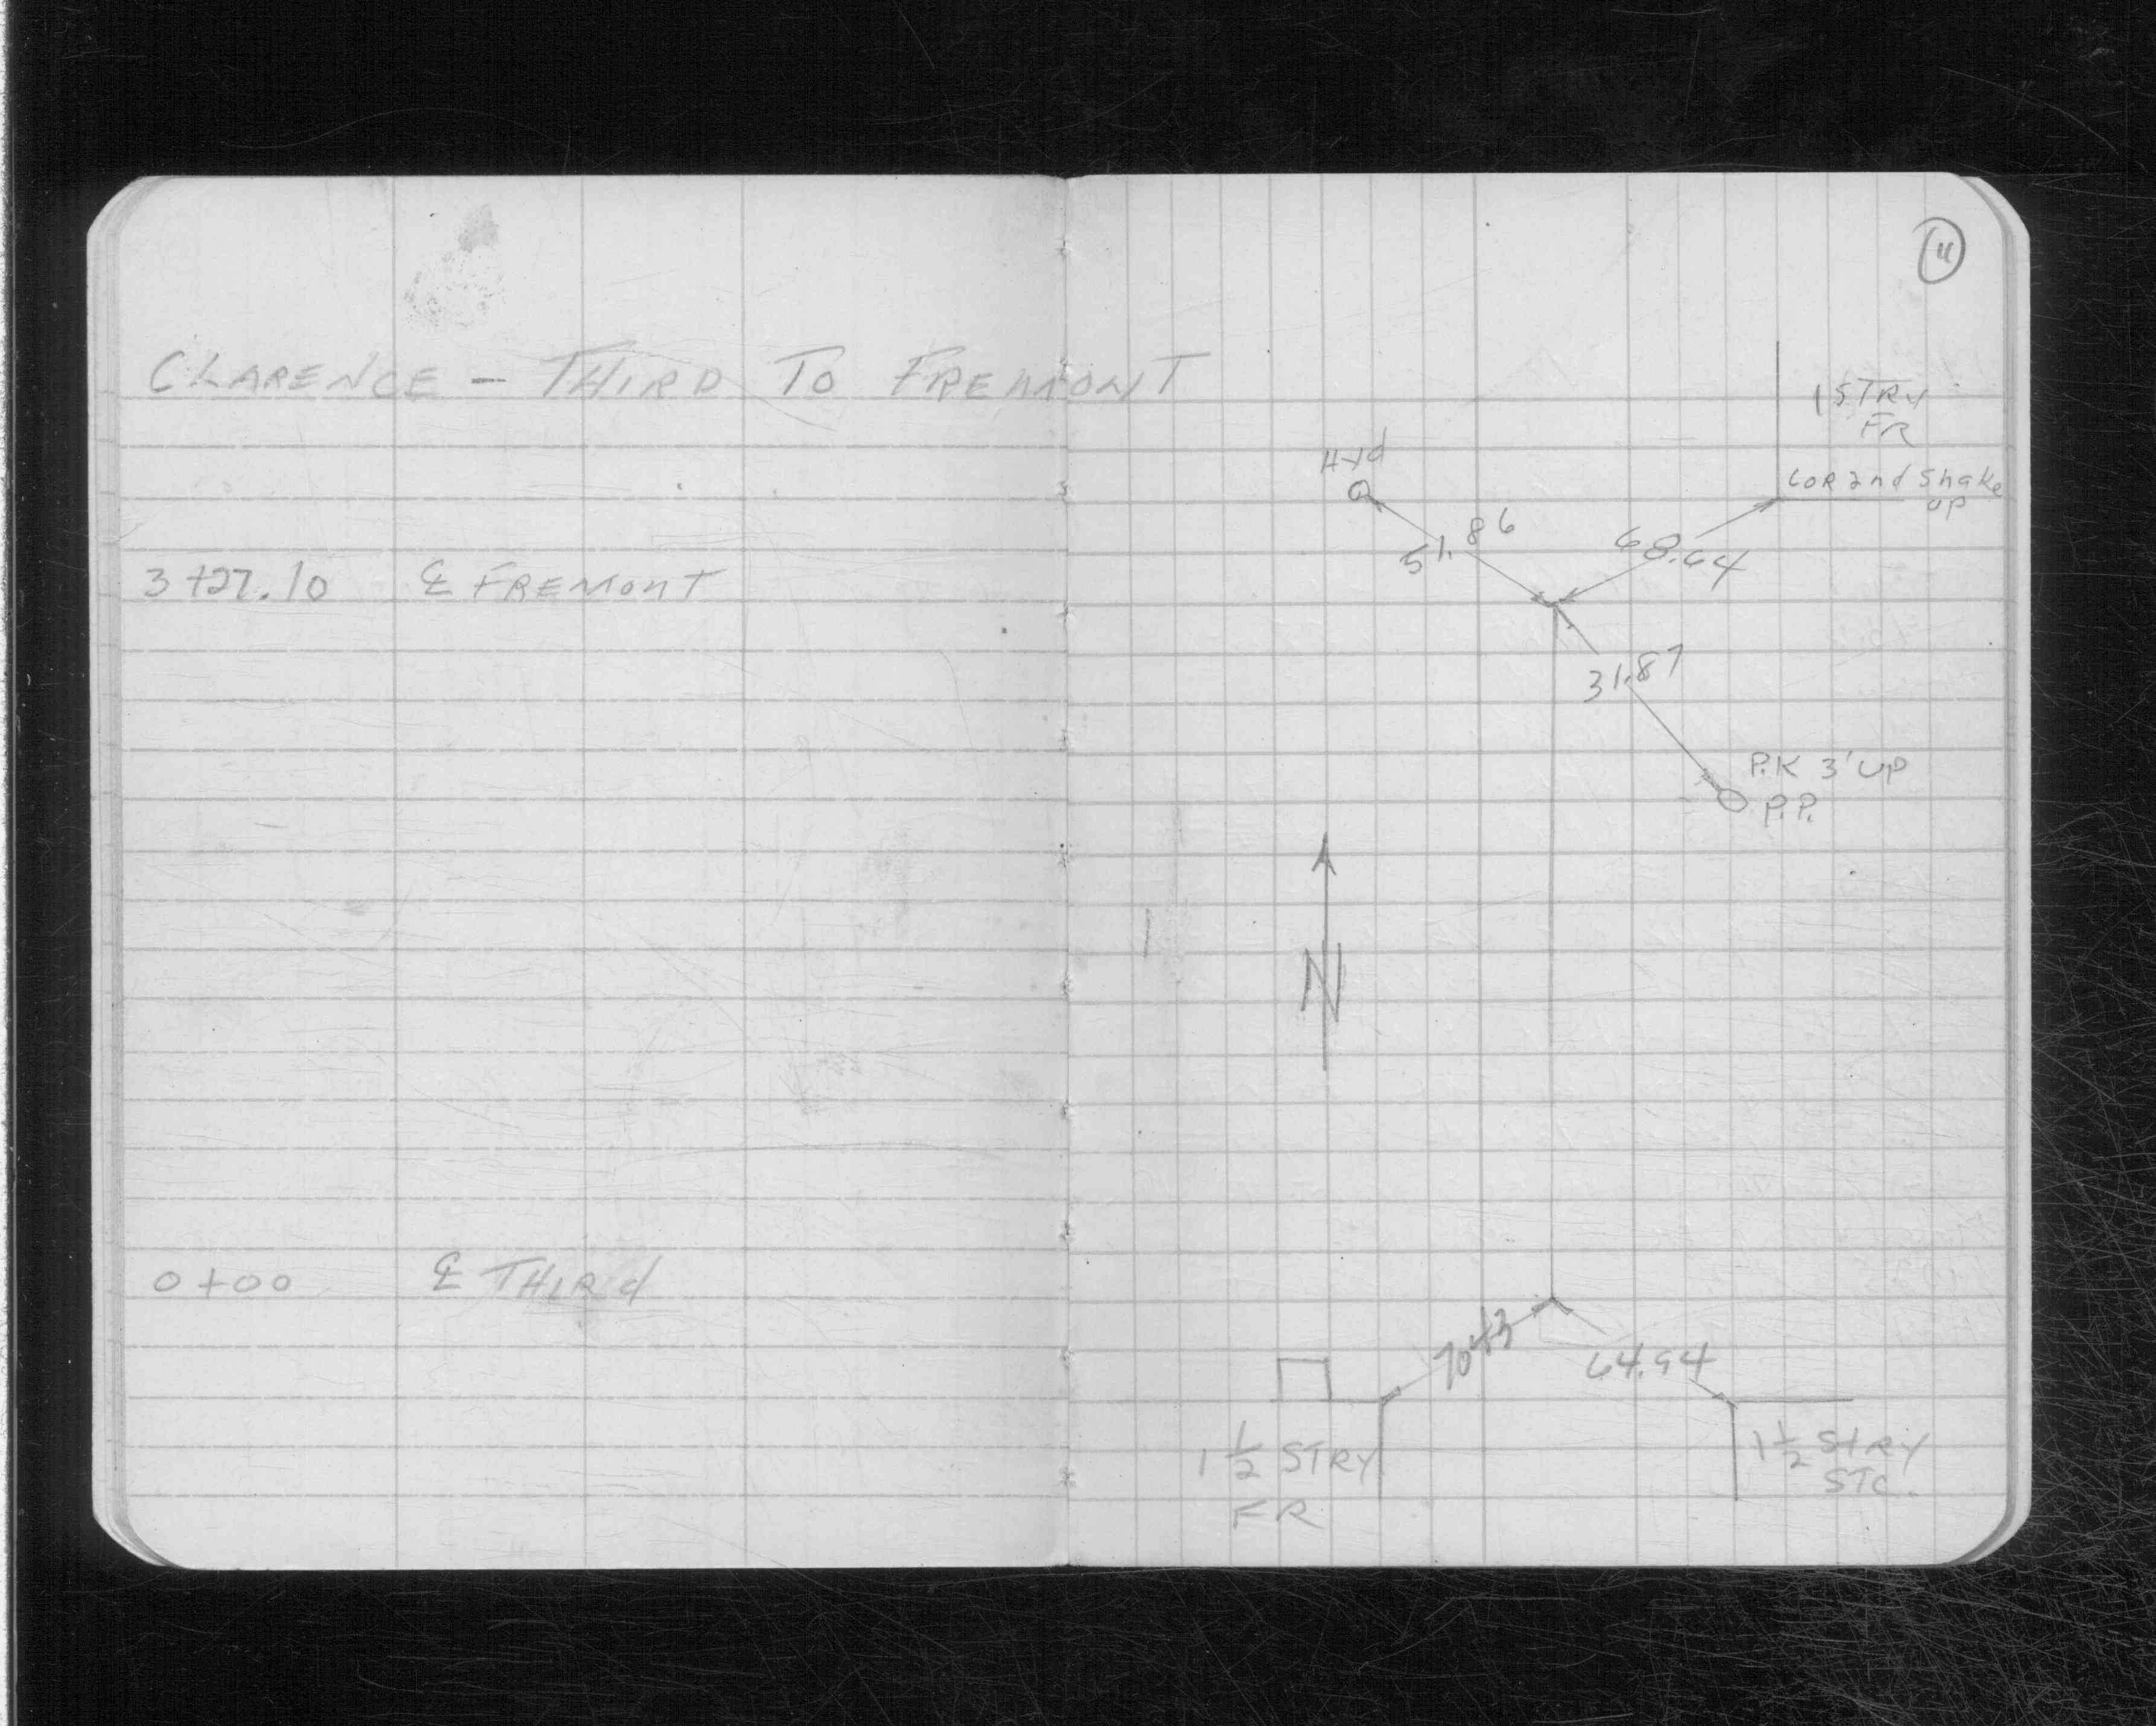 11
CLARENCE - THIRD TO FREMONT
1 STRY
FR
Hyd
COR 2nd Shake
UP
51.86
68.64
3+27.10 ℄ FREMONT
31.87
P.K 3' UP
P.P.
N
0+00 ℄ THIRd
70.43
64.94
1 1/2 STRY
FR
1 1/2 STRY
STC.